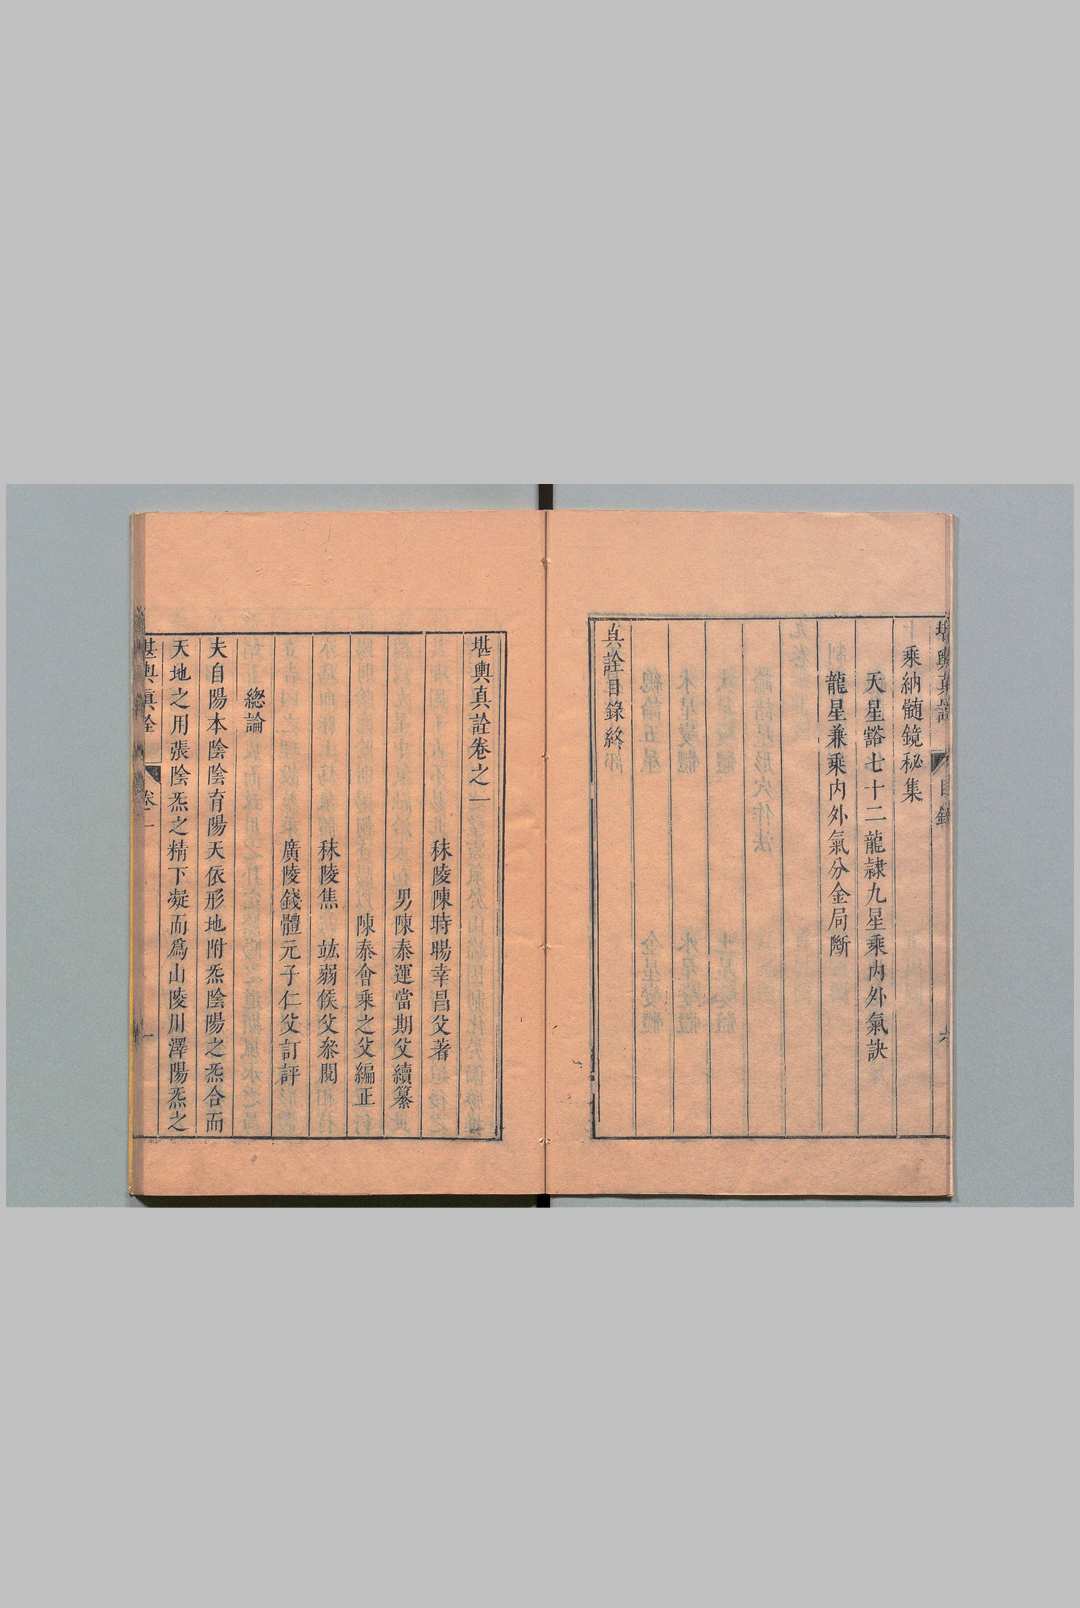 堪輿真詮
目錄
六
乘納髓鏡秘集
天星豁七十二龍隷九星乘內外氣訣
龍星兼乘內外氣分金局斷
真詮目錄終
堪輿真詮卷之一
秣陵陳時暘幸昌父著
男陳泰運當期父續纂
陳泰會乘之父編正
秣陵焦竑弱侯父叅閱
廣陵錢體元子仁父訂評
總論
夫自陽本陰陰育陽天依形地附炁陰陽之炁合而
天地之用張陰炁之精下凝而爲山陵川澤陽炁之
堪輿真詮
卷一
一